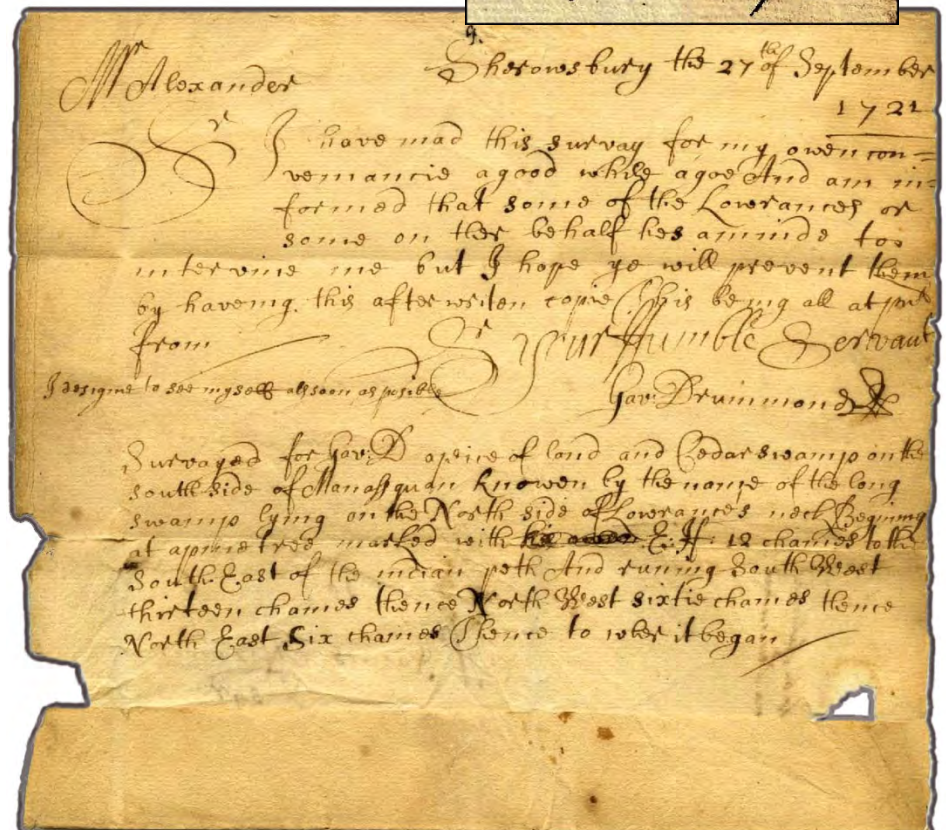 9.
Sherowsbury the 27th of September
Mr Alexander
1721
Sr I have mad this survay for my owen con=
veniancie a good while agoe And am in=
formed that some of the Lowrances or
some on ther behalf hes a minde to
intervine me but I hope ye will prevent them
by haveing this after writen copie This being all at pnt
from Sr Your Humble Servant
I designe to see myself alsoon as posible
Gav: Drummond
Survayed for Gav: D a peice of land and Cedar swamp on the
south side of Manasquan knowen by the name of the long
swamp lying on the North side of Lowrances neck Begining
at a pine tree marked with 18 chaines to the
South East of the indian peth And runing South West
thirteen chaines thence North West sixtie chaines thence
North East Six chaines Thence to wher it began